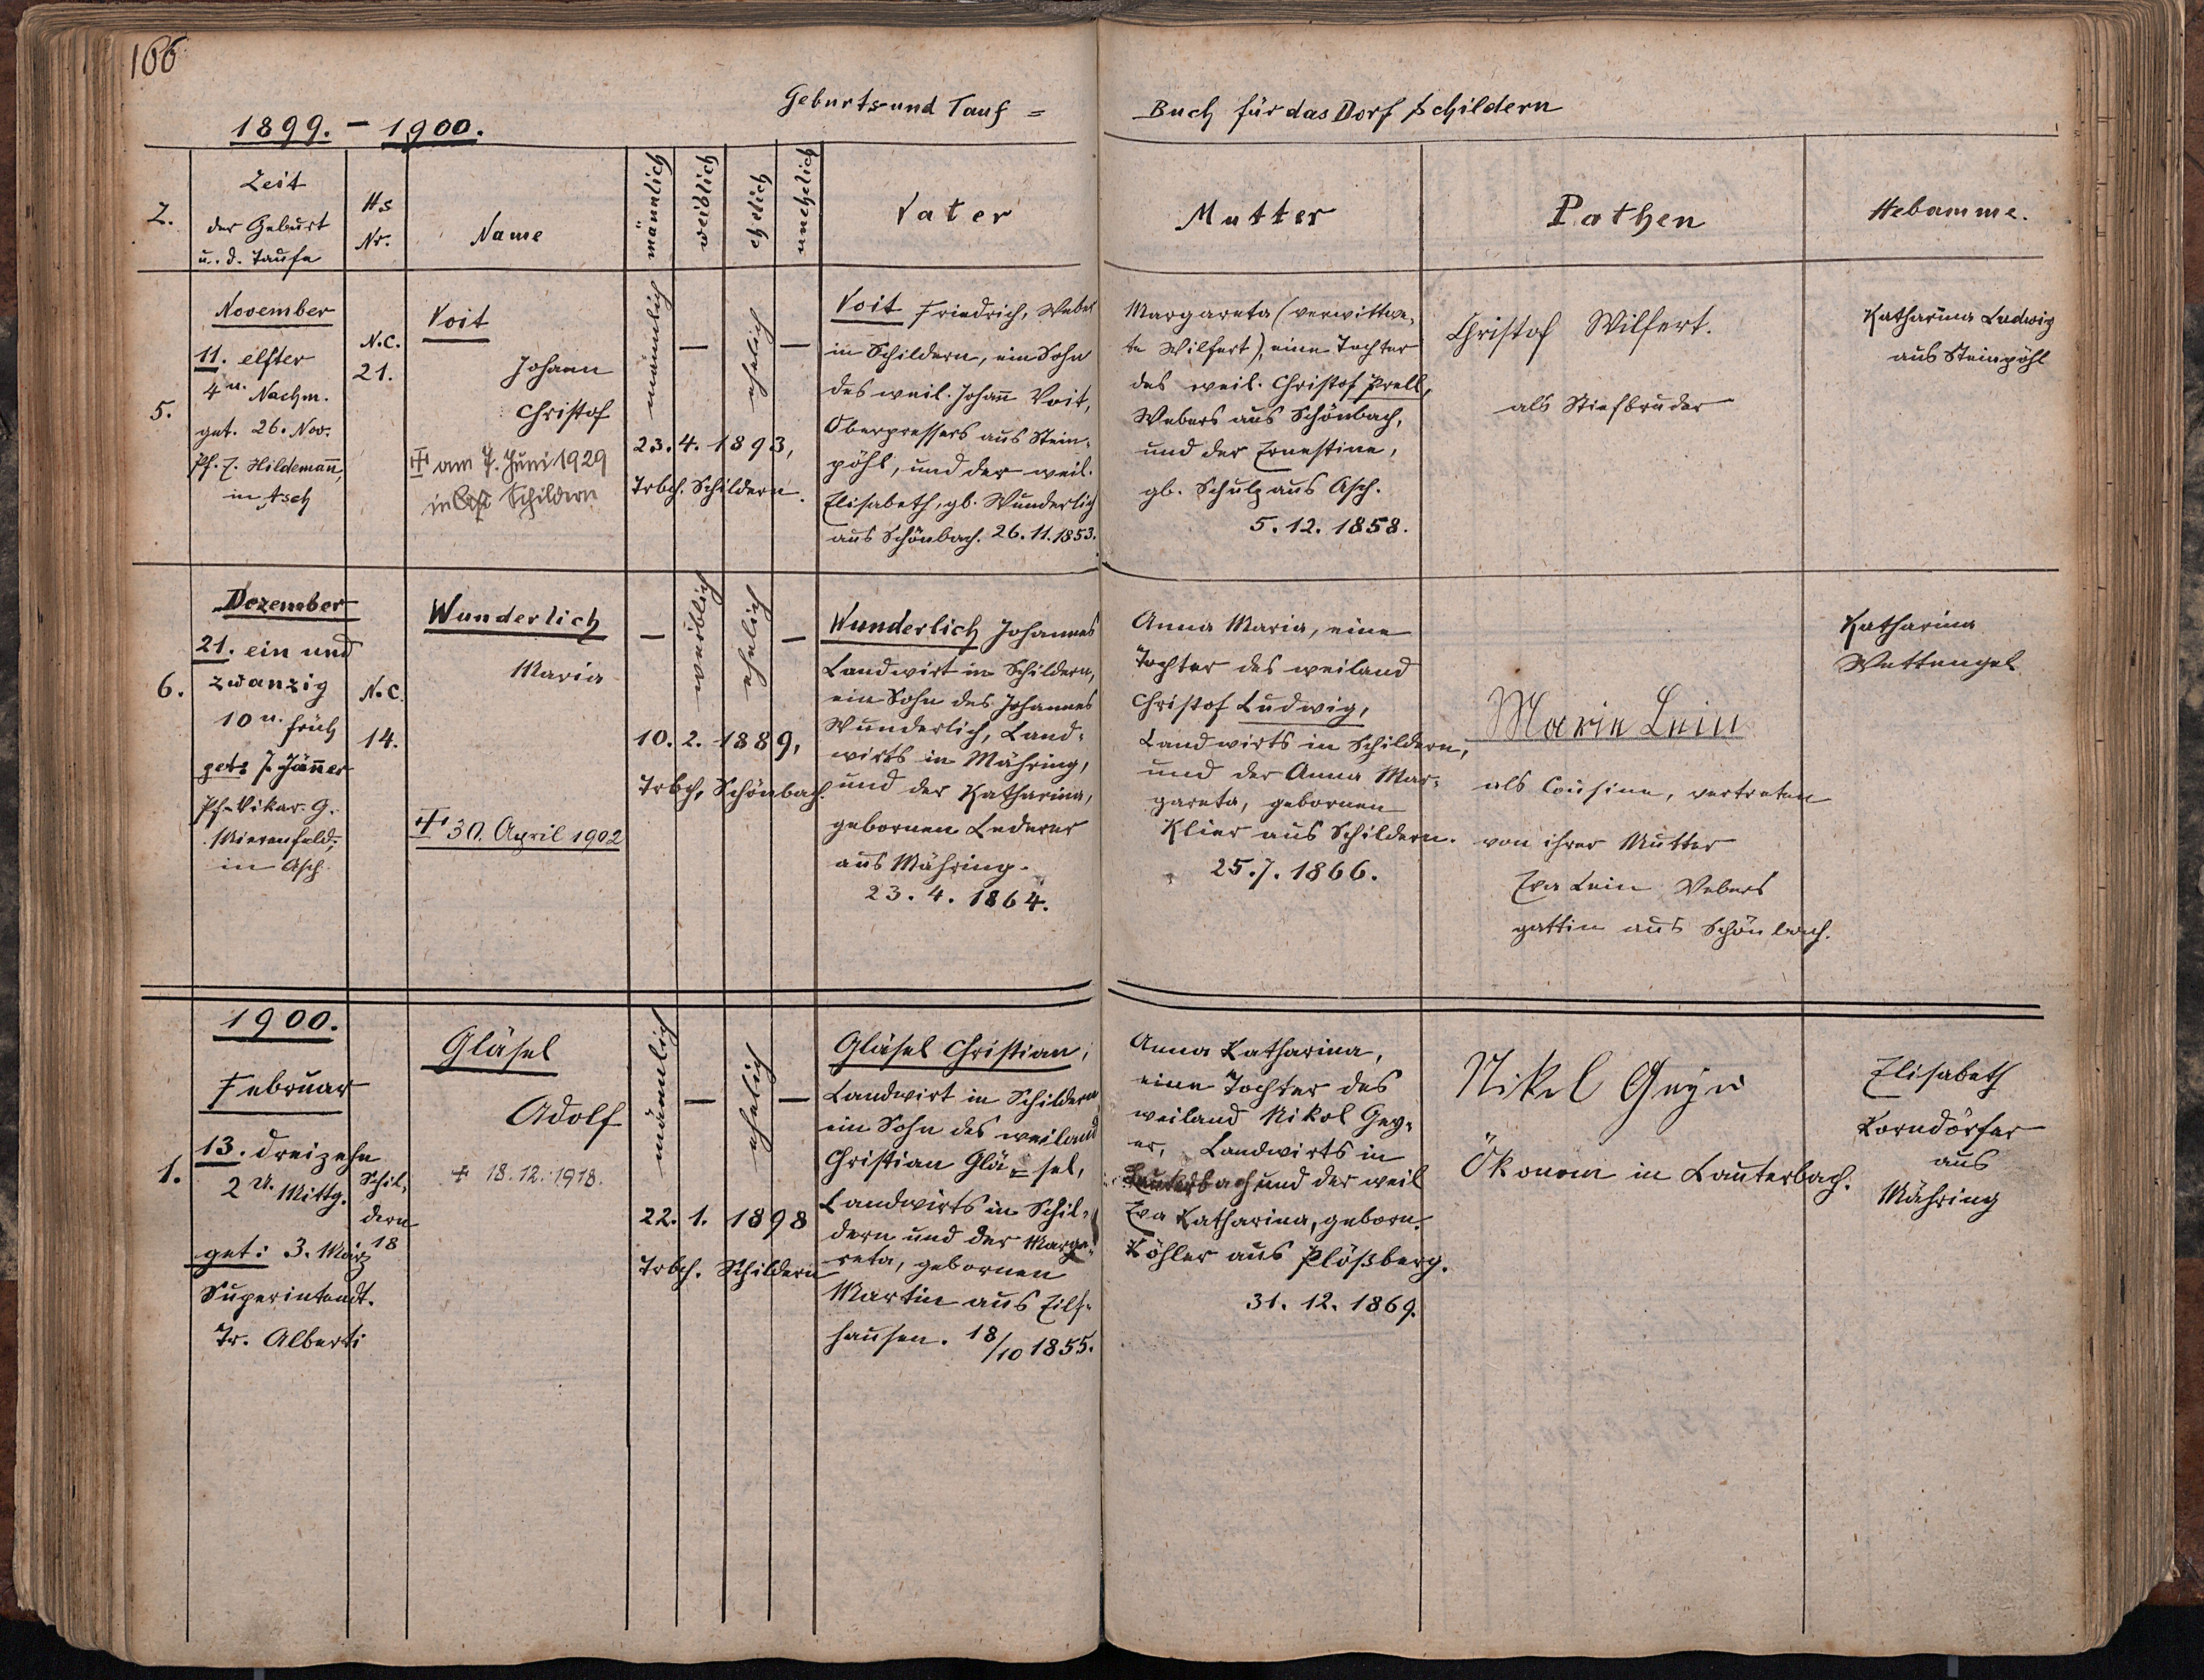 166
Geburts und Tauf =
Buch für das Dorf Schildern
1899. – 1900.
Z.
Zeit
der Geburt
u. d. Taufe
Hs
Nr.
Name
männlich
weiblich
ehelich
unehelich
Vater
Mutter
Pathen
Hebamme.
5.
November
11. elfter
4 u. Nachm.
get. 26. Nov.
Pf. F. Hildemañ,
in Asch
N.C.
21.
Voit
Johann
Christof
am 7. Juni 1929
in Schildern
männlich
–
ehelich
–
23. 4. 1893,
Trbch. Schildern.
Voit Friedrich, Weber
in Schildern, ein Sohn
des weil. Johañ Voit,
Oberpressers aus Stein-
pöhl, und der weil.
Elisabeth, gb. Wunderlich
aus Schönbach. 26. 11. 1853.
Margareta (verwittwe-
te Wilfert), eine Tochter
des weil. Christof Prell,
Webers aus Schönbach,
und der Ernestine,
gb. Schulz aus Asch.
5. 12. 1858.
Christof Wilfert.
als Stiefbruder
Katharina Ludwig
aus Steinpöhl
6.
Dezember
21. ein und
zwanzig
10 u. früh
get: 7. Jäñer
Pf-Vikar. G.
in Asch.
N.C.
14.
Wunderlich
Maria
30. April 1902
–
weiblich
ehelich
–
10. 2. 1889,
Trbch, Schönbach.
Wunderlich Johannes
Landwirt in Schildern,
ein Sohn des Johannes
Wunderlich, Land-
wirts in Mähring,
und der Katharina,
gebornen Lederer
aus Mähring.
23. 4. 1864.
Anna Maria, eine
Tochter des weiland
Christof Ludwig,
Landwirts in Schildern,
und der Anna Mar-
gareta, gebornen
Klier aus Schildern.
25. 7. 1866.
Marie Lein
als Cousine, vertreten
von ihrer Mutter
Eva Lein Webers
gattin aus Schönbach.
Katharina
Wettengel
1900.
1.
Februar
13. dreizehn
2 U. Mittg.
get: 3. März
Superintendt.
Tr. Alberti
Schil-
dern
18
Gläsel
Adolf
+ 18. 12. 1918.
männlich
–
ehelich
–
22. 1. 1898
Trbch. Schildern
Gläsel Christian,
Landwirt in Schildern
ein Sohn des weiland
Christian Glä = sel,
Landwirts in Schil-
dern und der Marga-
reta, gebornen
Martin aus Eils-
hausen. 18/10 1855.
Anna Katharina,
eine Tochter des
weiland Nikol Gey-
er, Landwirts in
Lauterbach und der weil
Eva Katharina, geborn.
Köhler aus Plößberg.
31. 12. 1869.
Nikol Geyer
Ökonom in Lauterbach.
Elisabeth
Korndörfer
aus
Mähring